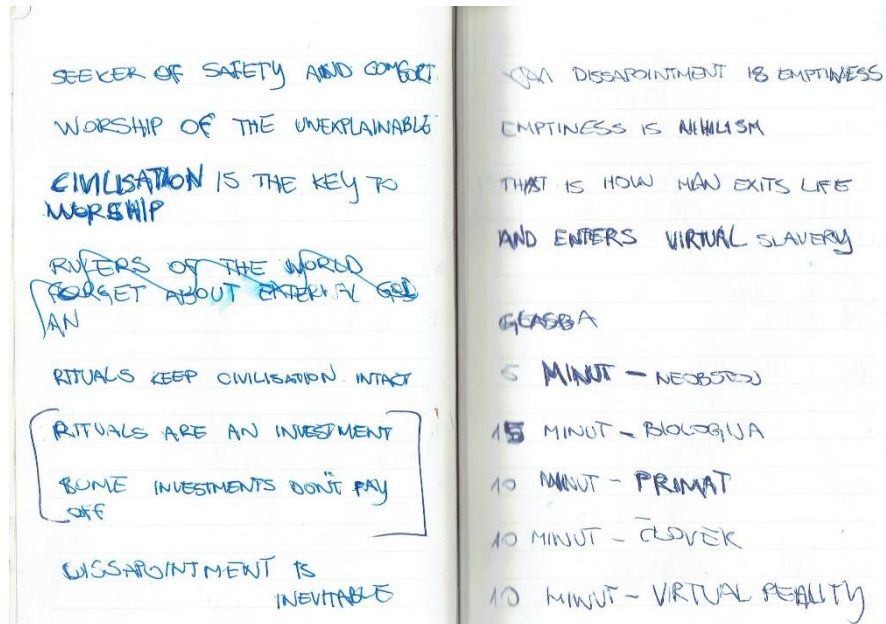 SEEKER OF SAFETY AND COMFORT
WORSHIP OF THE UNEXPLAINABLE
CIVILISATION IS THE KEY TO
WORSHIP
RULERS OF THE WORLD
FORGET ABOUT EXTERNAL GOD
AN
RITUALS KEEP CIVILISATION INTACT
RITUALS ARE AN INVESTMENT
SOME INVESTMENTS DON'T PAY
OFF
DISSAPOINTMENT IS
INEVITABLE
DISSAPOINTMENT IS EMPTINESS
EMPTINESS IS NIHILISM
THAT IS HOW MAN EXITS LIFE
AND ENTERS VIRTUAL SLAVERY
GLASBA
5 MINUT - NEOBSTOJ
15 MINUT - BIOLOGIJA
10 MINUT - PRIMAT
10 MINUT - ČLOVEK
10 MINUT - VIRTUAL REALITY